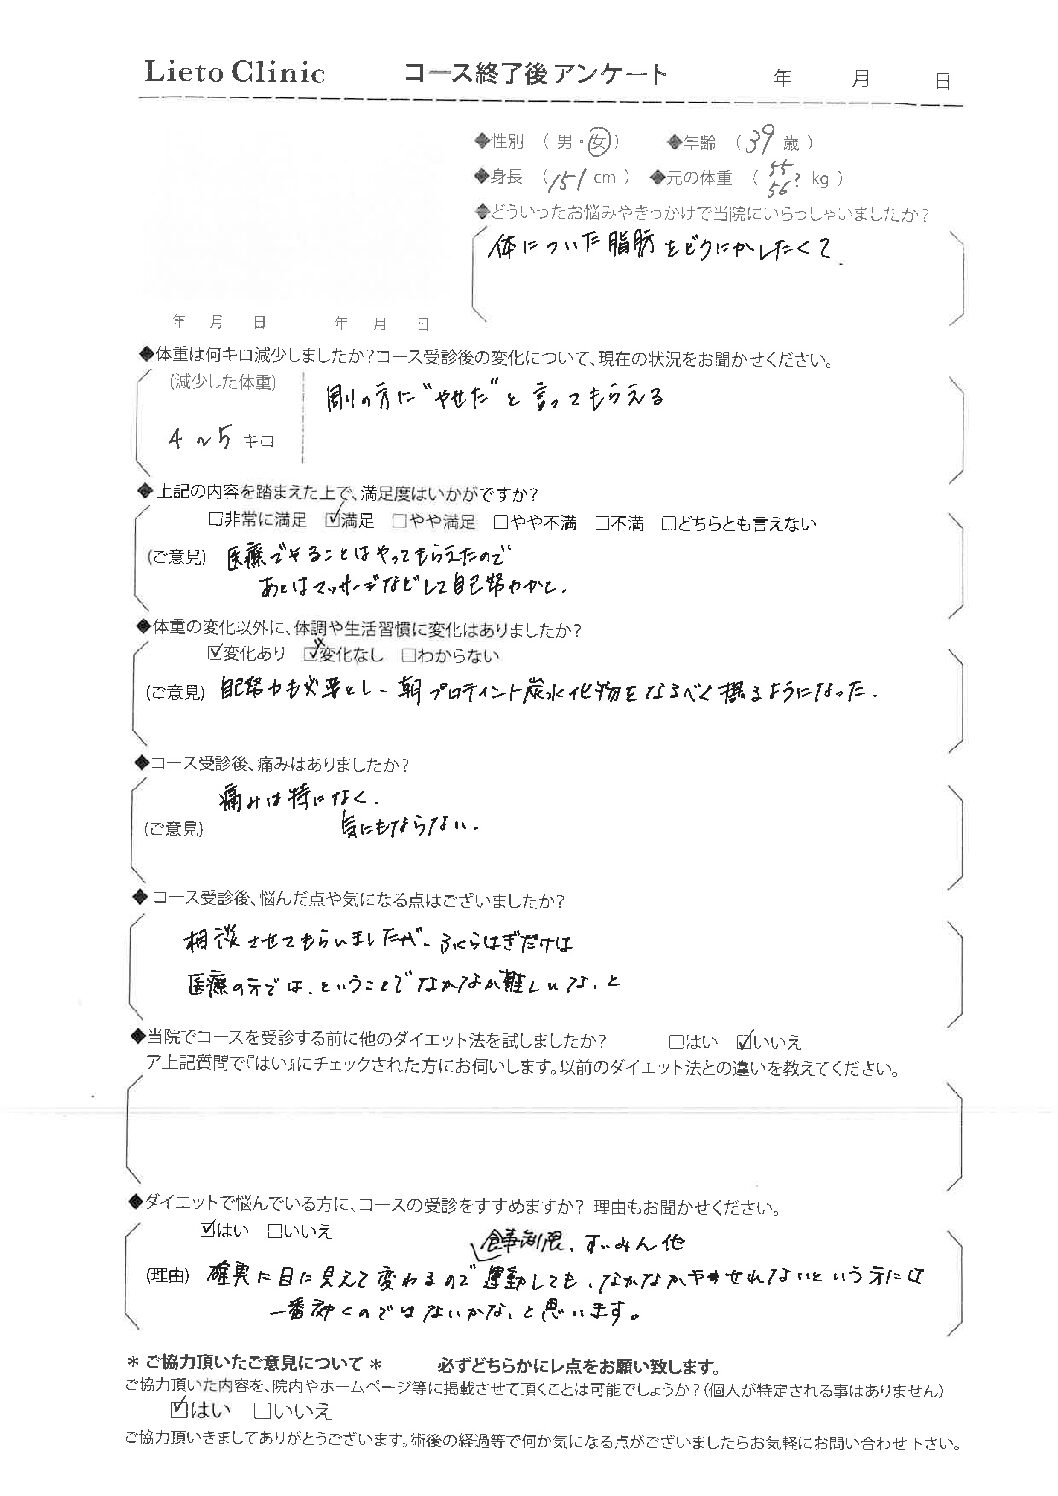 Lieto Clinic コース終了後アンケート 年 月 日
◆性別 （ 男・女 ） ◆年齢 （ 39 歳 ）
◆身長 （ 151 cm ） ◆元の体重 （ 55 56? kg ）
◆どういったお悩みやきっかけで当院にいらっしゃいましたか?
体についた脂肪をどうにかしたくて.
年 月 日 年 月 日
◆体重は何キロ減少しましたか?コース受診後の変化について、現在の状況をお聞かせください。
(減少した体重)
周りの方に"やせた"と言ってもらえる
4～5 キロ
◆上記の内容を踏まえた上で、満足度はいかがですか?
□非常に満足 ☑満足 □やや満足 □やや不満 □不満 □どちらとも言えない
(ご意見) 医療でやることはやってもらえたので
あとはマッサージなどして自己努力かと.
◆体重の変化以外に、体調や生活習慣に変化はありましたか?
☑変化あり ☑変化なし □わからない
(ご意見) 自己努力も必要とし、朝プロテイント炭水化物をなるべく摂るようになった.
◆コース受診後、痛みはありましたか?
痛みは特になく.
(ご意見) 気にもならない.
◆コース受診後、悩んだ点や気になる点はございましたか?
相談させてもらいましたが、ふくらはぎだけは
医療の方では、ということでなかなか難しいな、と
◆当院でコースを受診する前に他のダイエット法を試しましたか? □はい ☑いいえ
ア上記質問で『はい』にチェックされた方にお伺いします。以前のダイエット法との違いを教えてください。
◆ダイエットで悩んでいる方に、コースの受診をすすめますか? 理由もお聞かせください。
☑はい □いいえ
食事制限、すいみん他
(理由) 確実に目に見えて変わるので運動しても、なかなかやせれないという方には
一番効くのではないかな、と思います。
＊ご協力頂いたご意見について＊ 必ずどちらかにレ点をお願い致します。
ご協力頂いた内容を、院内やホームページ等に掲載させて頂くことは可能でしょうか?(個人が特定される事はありません)
☑はい □いいえ
ご協力頂きましてありがとうございます。術後の経過等で何か気になる点がございましたらお気軽にお問い合わせ下さい。